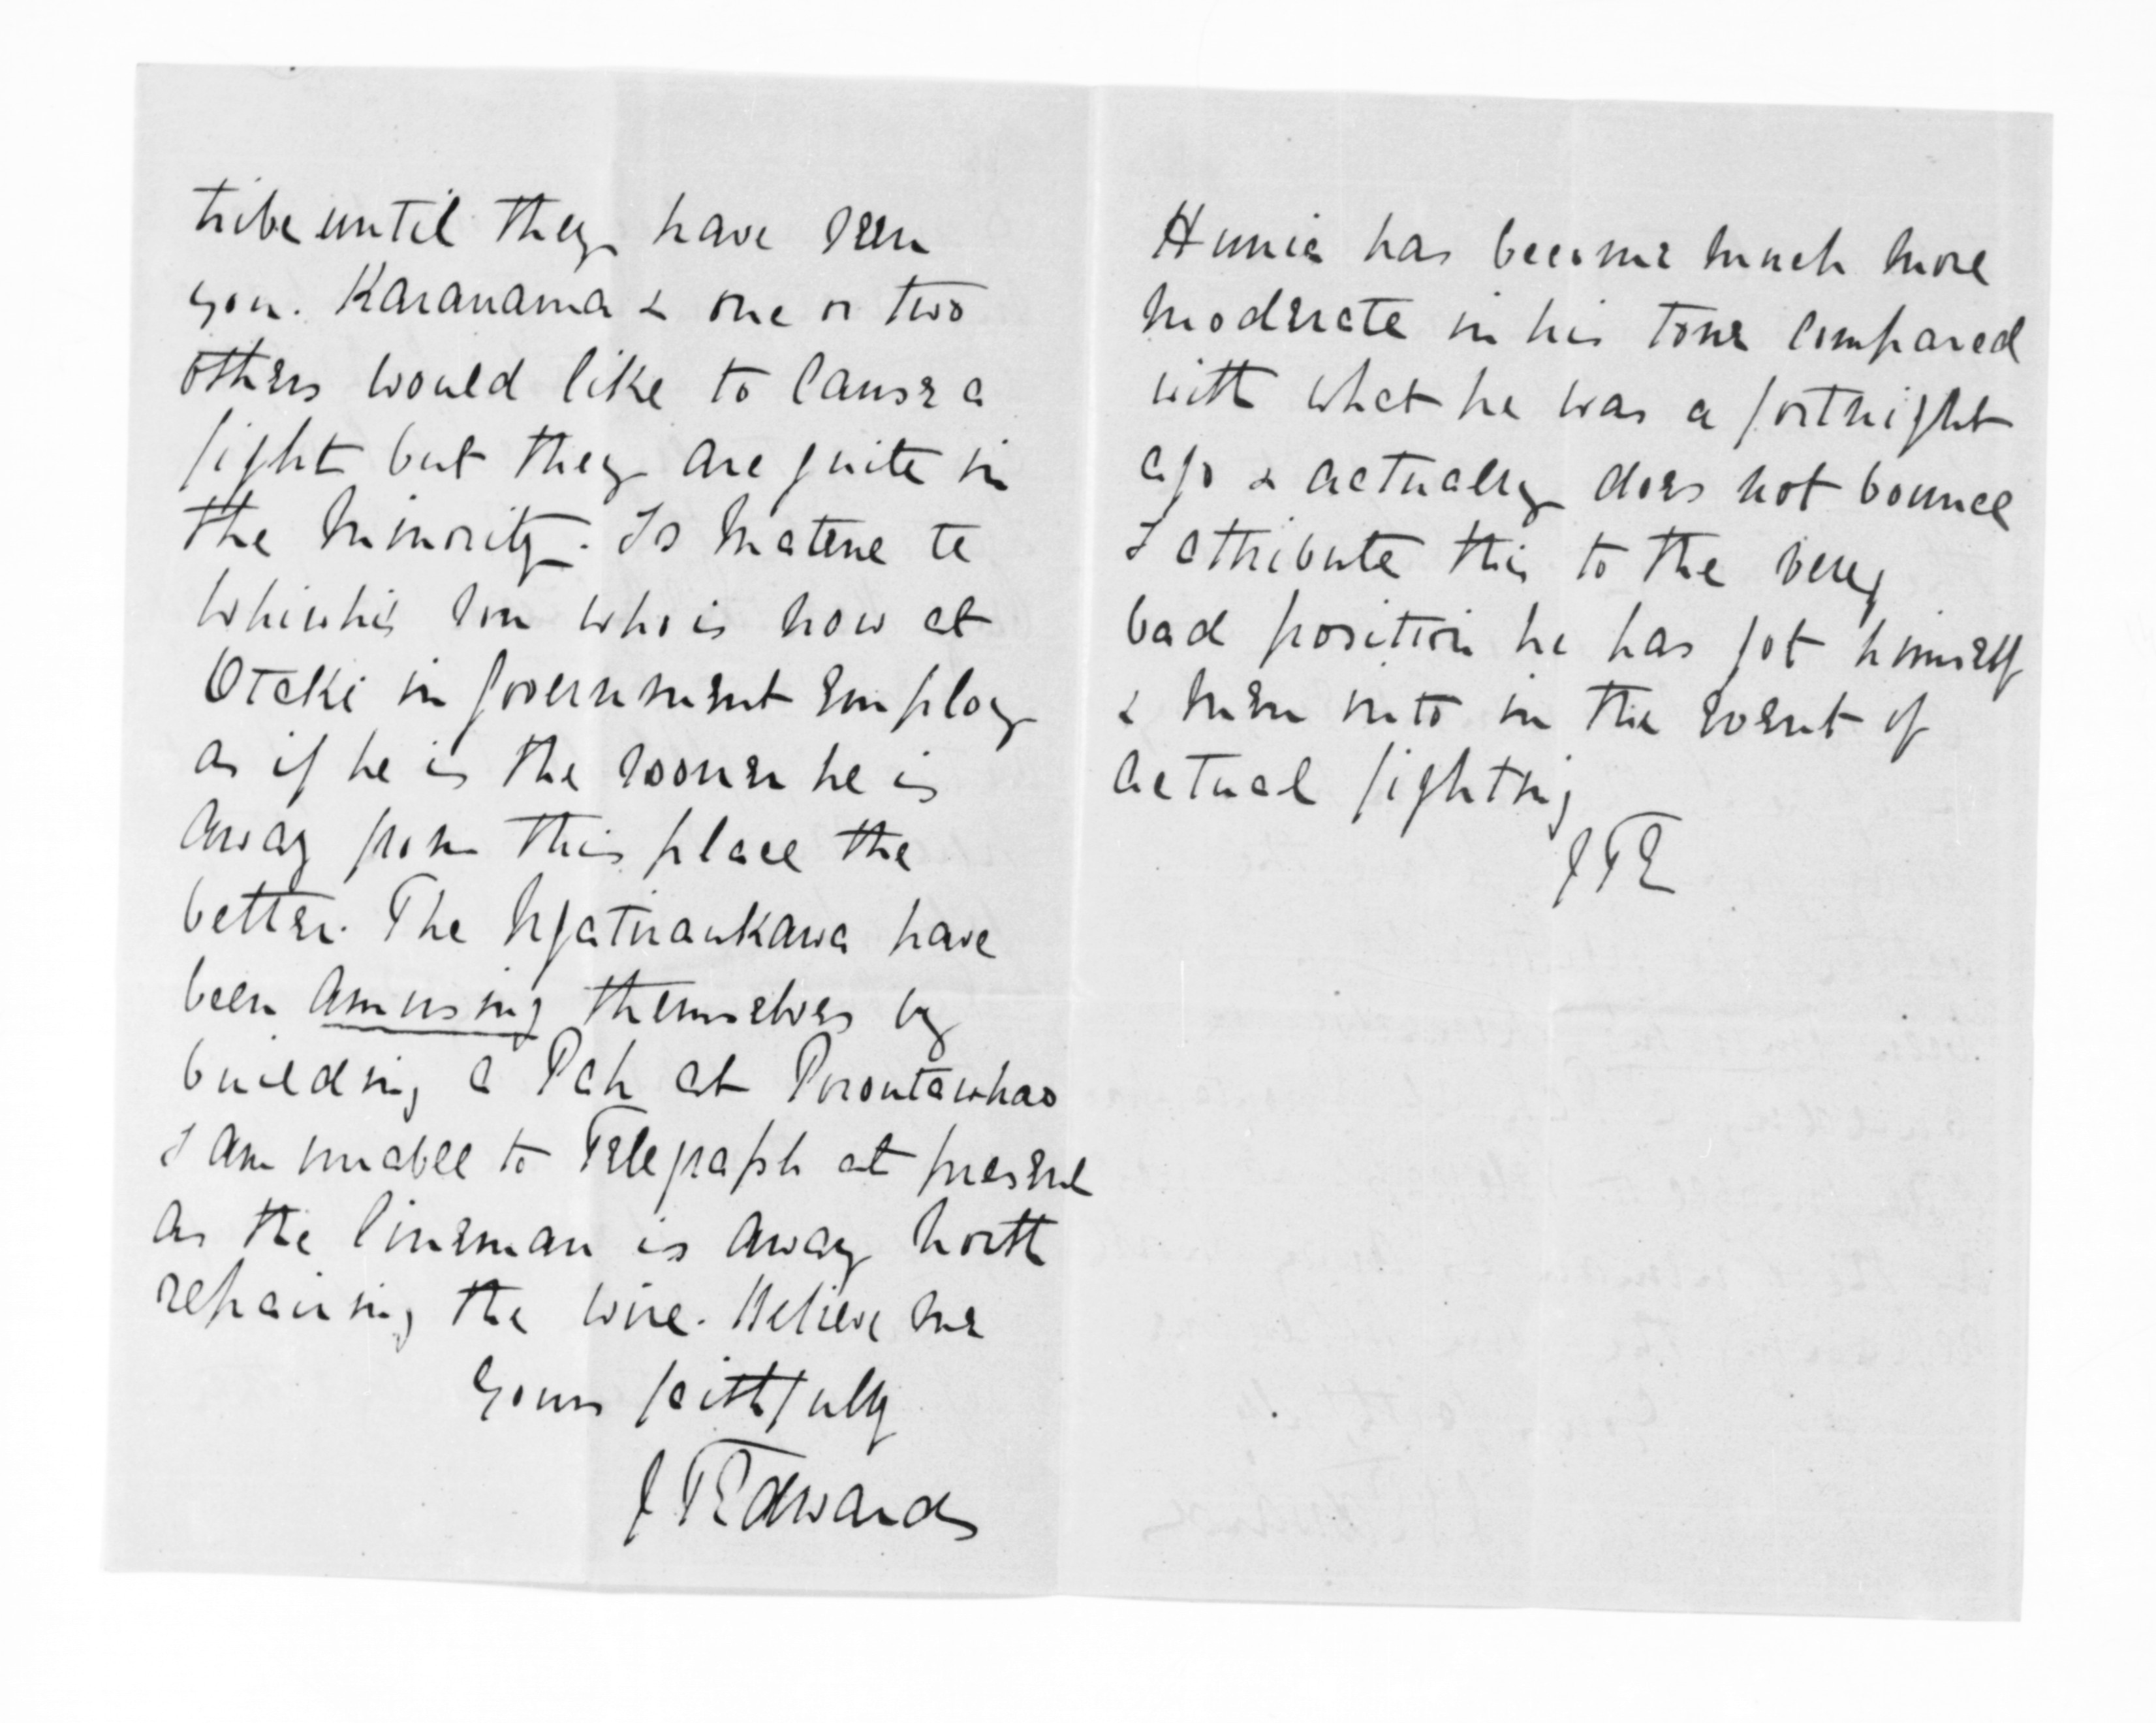 tribe until they have seen
you. Karanama & one or two
others would like to cause a
fight but they are quite in
the minority. Is Matene te
Whiwhis son who is now at
Otaki in government employ
as if he is the sooner he is
away from this place the
better. The Ngatiraukawa have
been amusing themselves by
building a Pah at Poroutawhao
I am unable to Telegraph at present
as the lineman is away north
repairing the wire. Believe me
Yours faithfully
J T Edwards
Hunia has become much more
moderate in his tone compared
with what he was a fortnight
ago & actually does not bounce
I attribute this to the very
bad position he has got himself
& men into in the event of
actual fighting
J T E